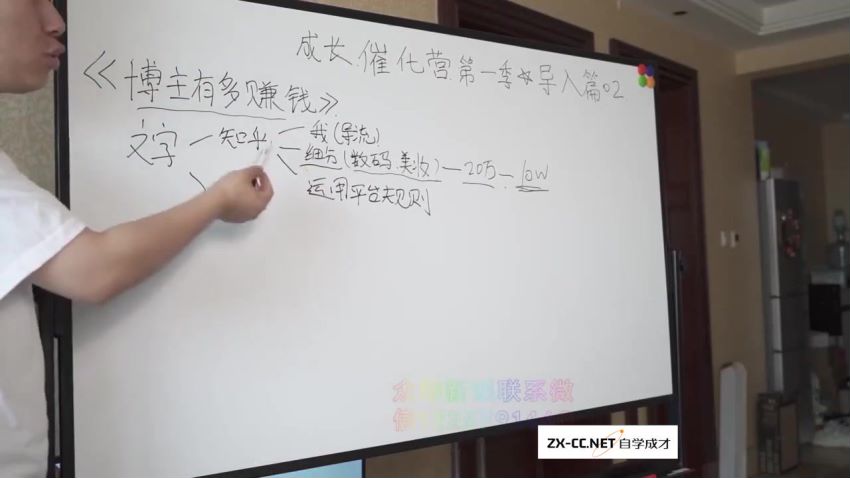 成长催化营第一季☆导入篇02
《博主有多赚钱》
文字 — 知乎 — 我(导流)
细分(数码.美妆) — 20万 — low
运用平台规则
联系微
ZX-CC.NET 自学成才